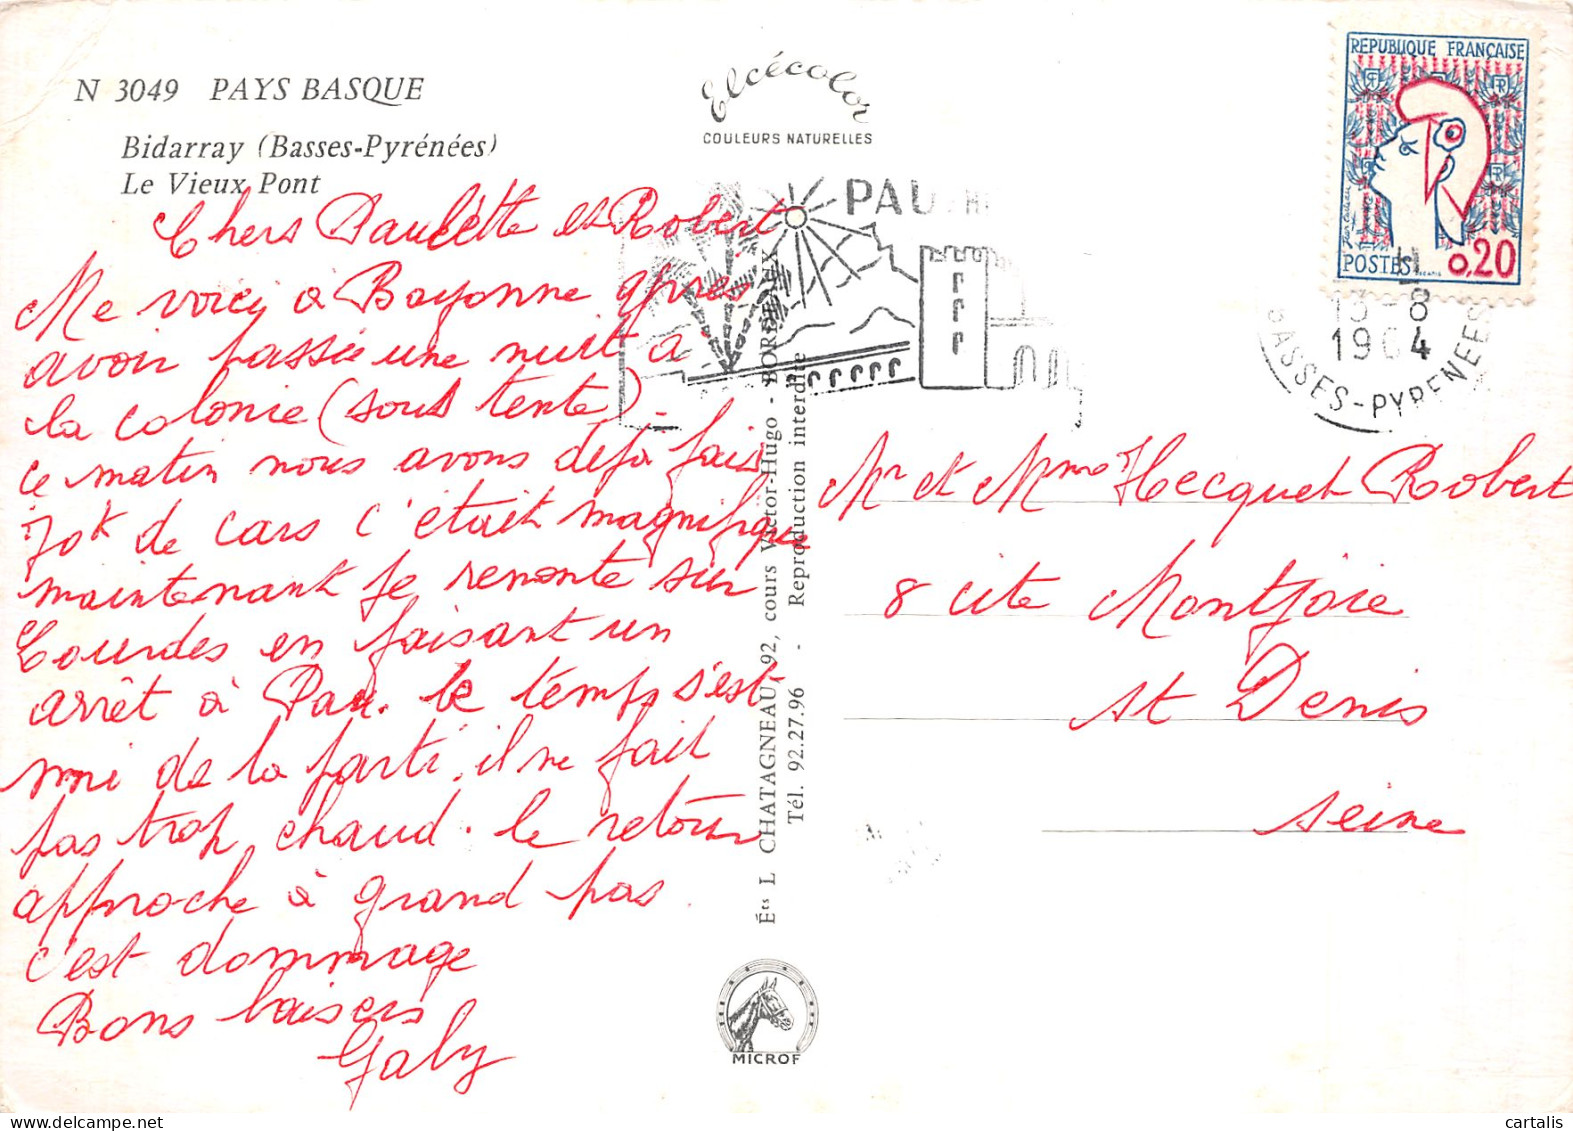 N 3049 PAYS BASQUE
Bidarray (Basses-Pyrénées)
Le Vieux Pont
Elcécolor
COULEURS NATURELLES
REPUBLIQUE FRANÇAISE
POSTES
0,20
PAU
13-8
1964
BASSES-PYRENEES
Chers Paulétte et Robert
Me voici a Bayonne après
avoir passée une nuit a
la colonie (sous tente).
ce matin nous avons déjà fais
70k de cars c'était magnifique
maintenant je remonte sur
Lourdes en faisant un
arrêt à Pau. le temps s'est
mi de la parti. il ne fait
pas trop chaud. le retour
approche à grand pas
c'est dommage
Bons baisers
Gaby
Éts L CHATAGNEAU, 92, cours Victor-Hugo - BORDEAUX
Tél. 92.27.96 - Reproduction interdite
MICROF
Mr et Mme Hecquet Robert
8 cite Montjoie
St Denis
Seine
cartalis